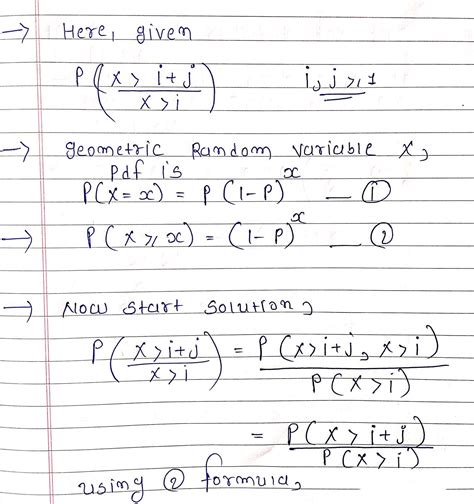 → Here, given
P(x > i+j / x > i)   i, j ≥ 1
→ geometric Random variable x,
pdf is
P(x = x) = P (1-P)^x — ①
→ P(x ≥ x) = (1-P)^x — ②
→ Now start solution,
P(x > i+j / x > i) = P(x > i+j, x > i) / P(x > i)
= P(x > i+j) / P(x > i)
using ② formula,